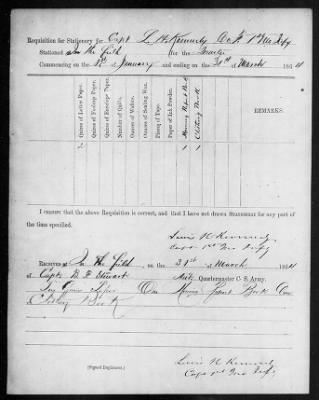 Requisition for Stationery for Capt L. H. Kennedy Co F 1st Mo Infy
Stationed In the field for the Quarter
Commencing on the 1st of January and ending on the 31st of March 1864
Quires of Letter Paper.
Quires of Foolscap Paper.
Quires of Envelope Paper.
Number of Quills.
Number of Wafers.
Ounces of Sealing Wax.
Pieces of Tape.
Papers of Ink Powder.
Morning Report Book
Clothing Book
REMARKS.
2 1 1
I CERTIFY that the above Requisition is correct, and that I have not drawn STATIONERY for any part of
the time specified.
Lewis H Kennedy
Capt 1st Mo Infy
RECEIVED at In the field, on the 31st of March 1864
of Capt B F Stewart Asst. Quartermaster C. S. Army.
Two Quires Paper One Morning Report Book One
Clothing Book
Lewis H Kennedy
Capt 1st Mo Infy
(Signed Duplicates.)